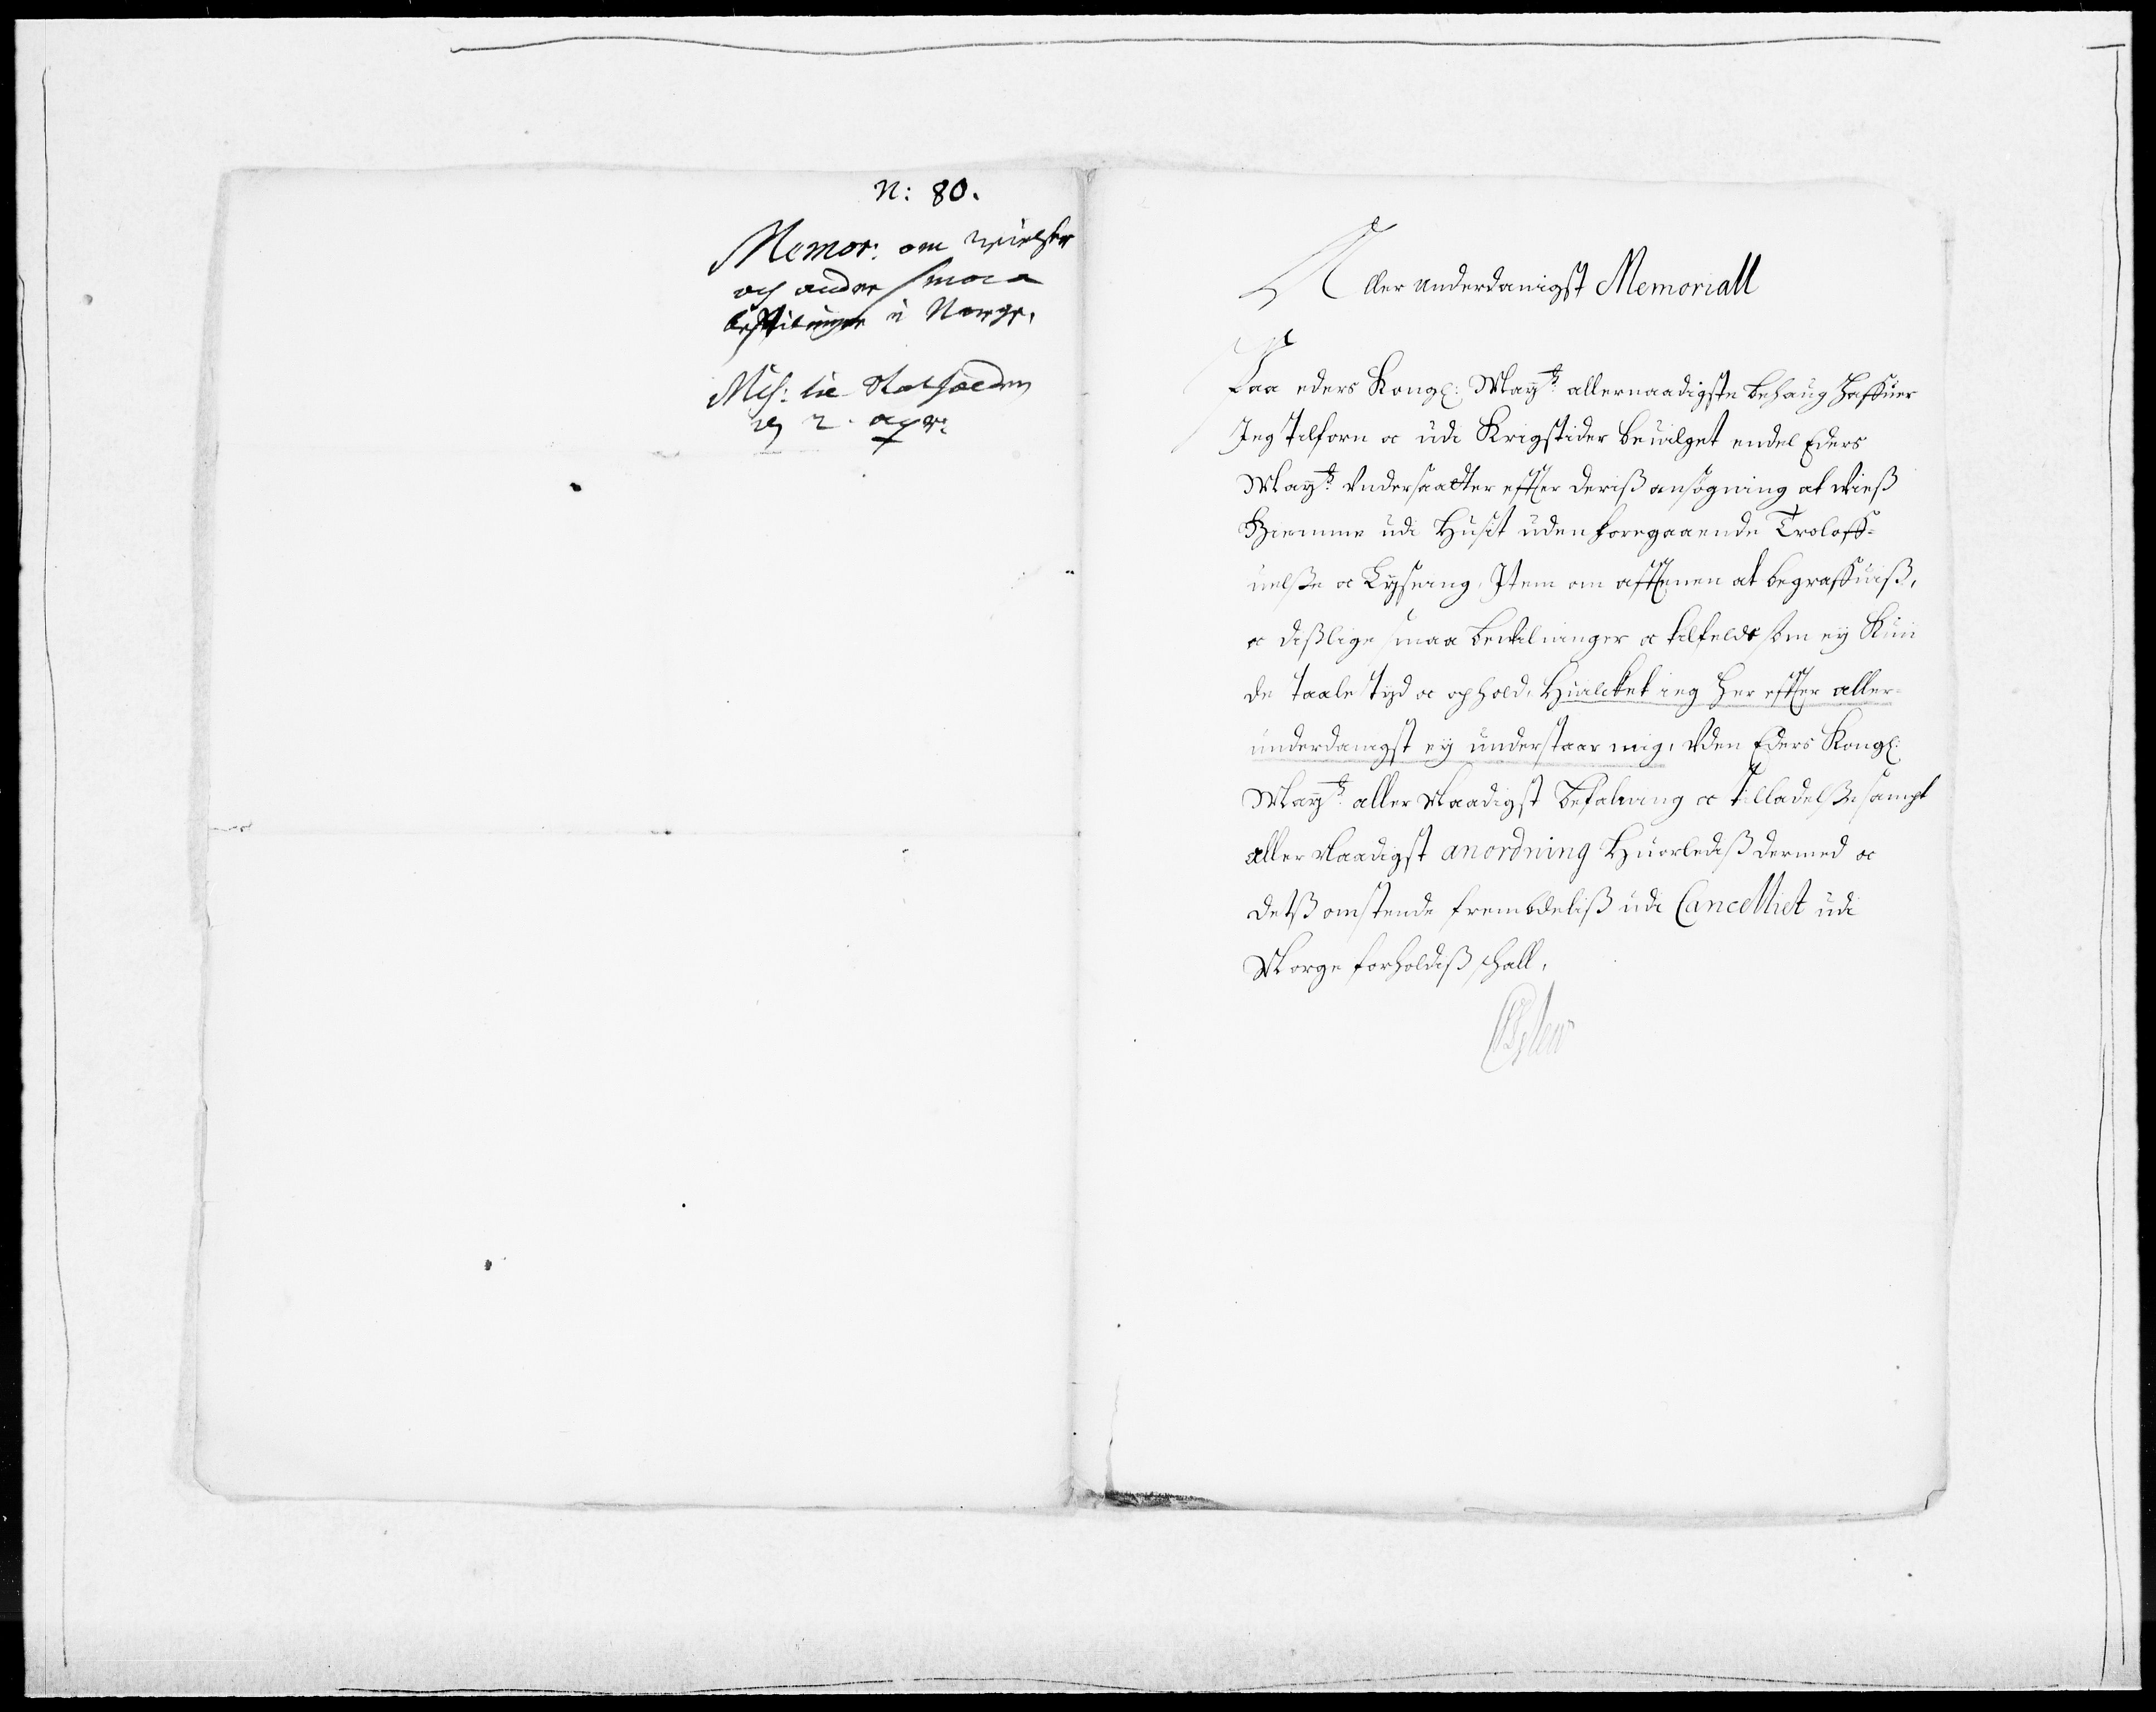 N: 80.
Memor: om vielser
och andre smaa
bestillinger i Norge.
Mis: til Stathold:
2. apr:
Aller underdanigst Memoriall
Paa eders Kongl: Maytz allernaadigste behaug haffuer
Jeg tilforn oc udi Krigstider beuilget endel Eders
Maytz Undersaatter effter deriß ansøgning at vieß
hiemme udi Husit uden foregaaende Troloff-
uelße oc Lysning, Item om afftenen at begraffuiß,
oc dißlige smaa beuilninger oc tilfelde som ey Kun
de taale tiid oc ophold, Huilcket ieg her effter aller-
underdanigst ey understaar mig, Uden Eders Kongl:
Maytz aller Naadigst befalning oc tilladelße sampt
aller Naadigst anordning Huorlediß dermed oc
detß omstende frembdeliß udi Cancelliet udi
Norge forholdiß shall,